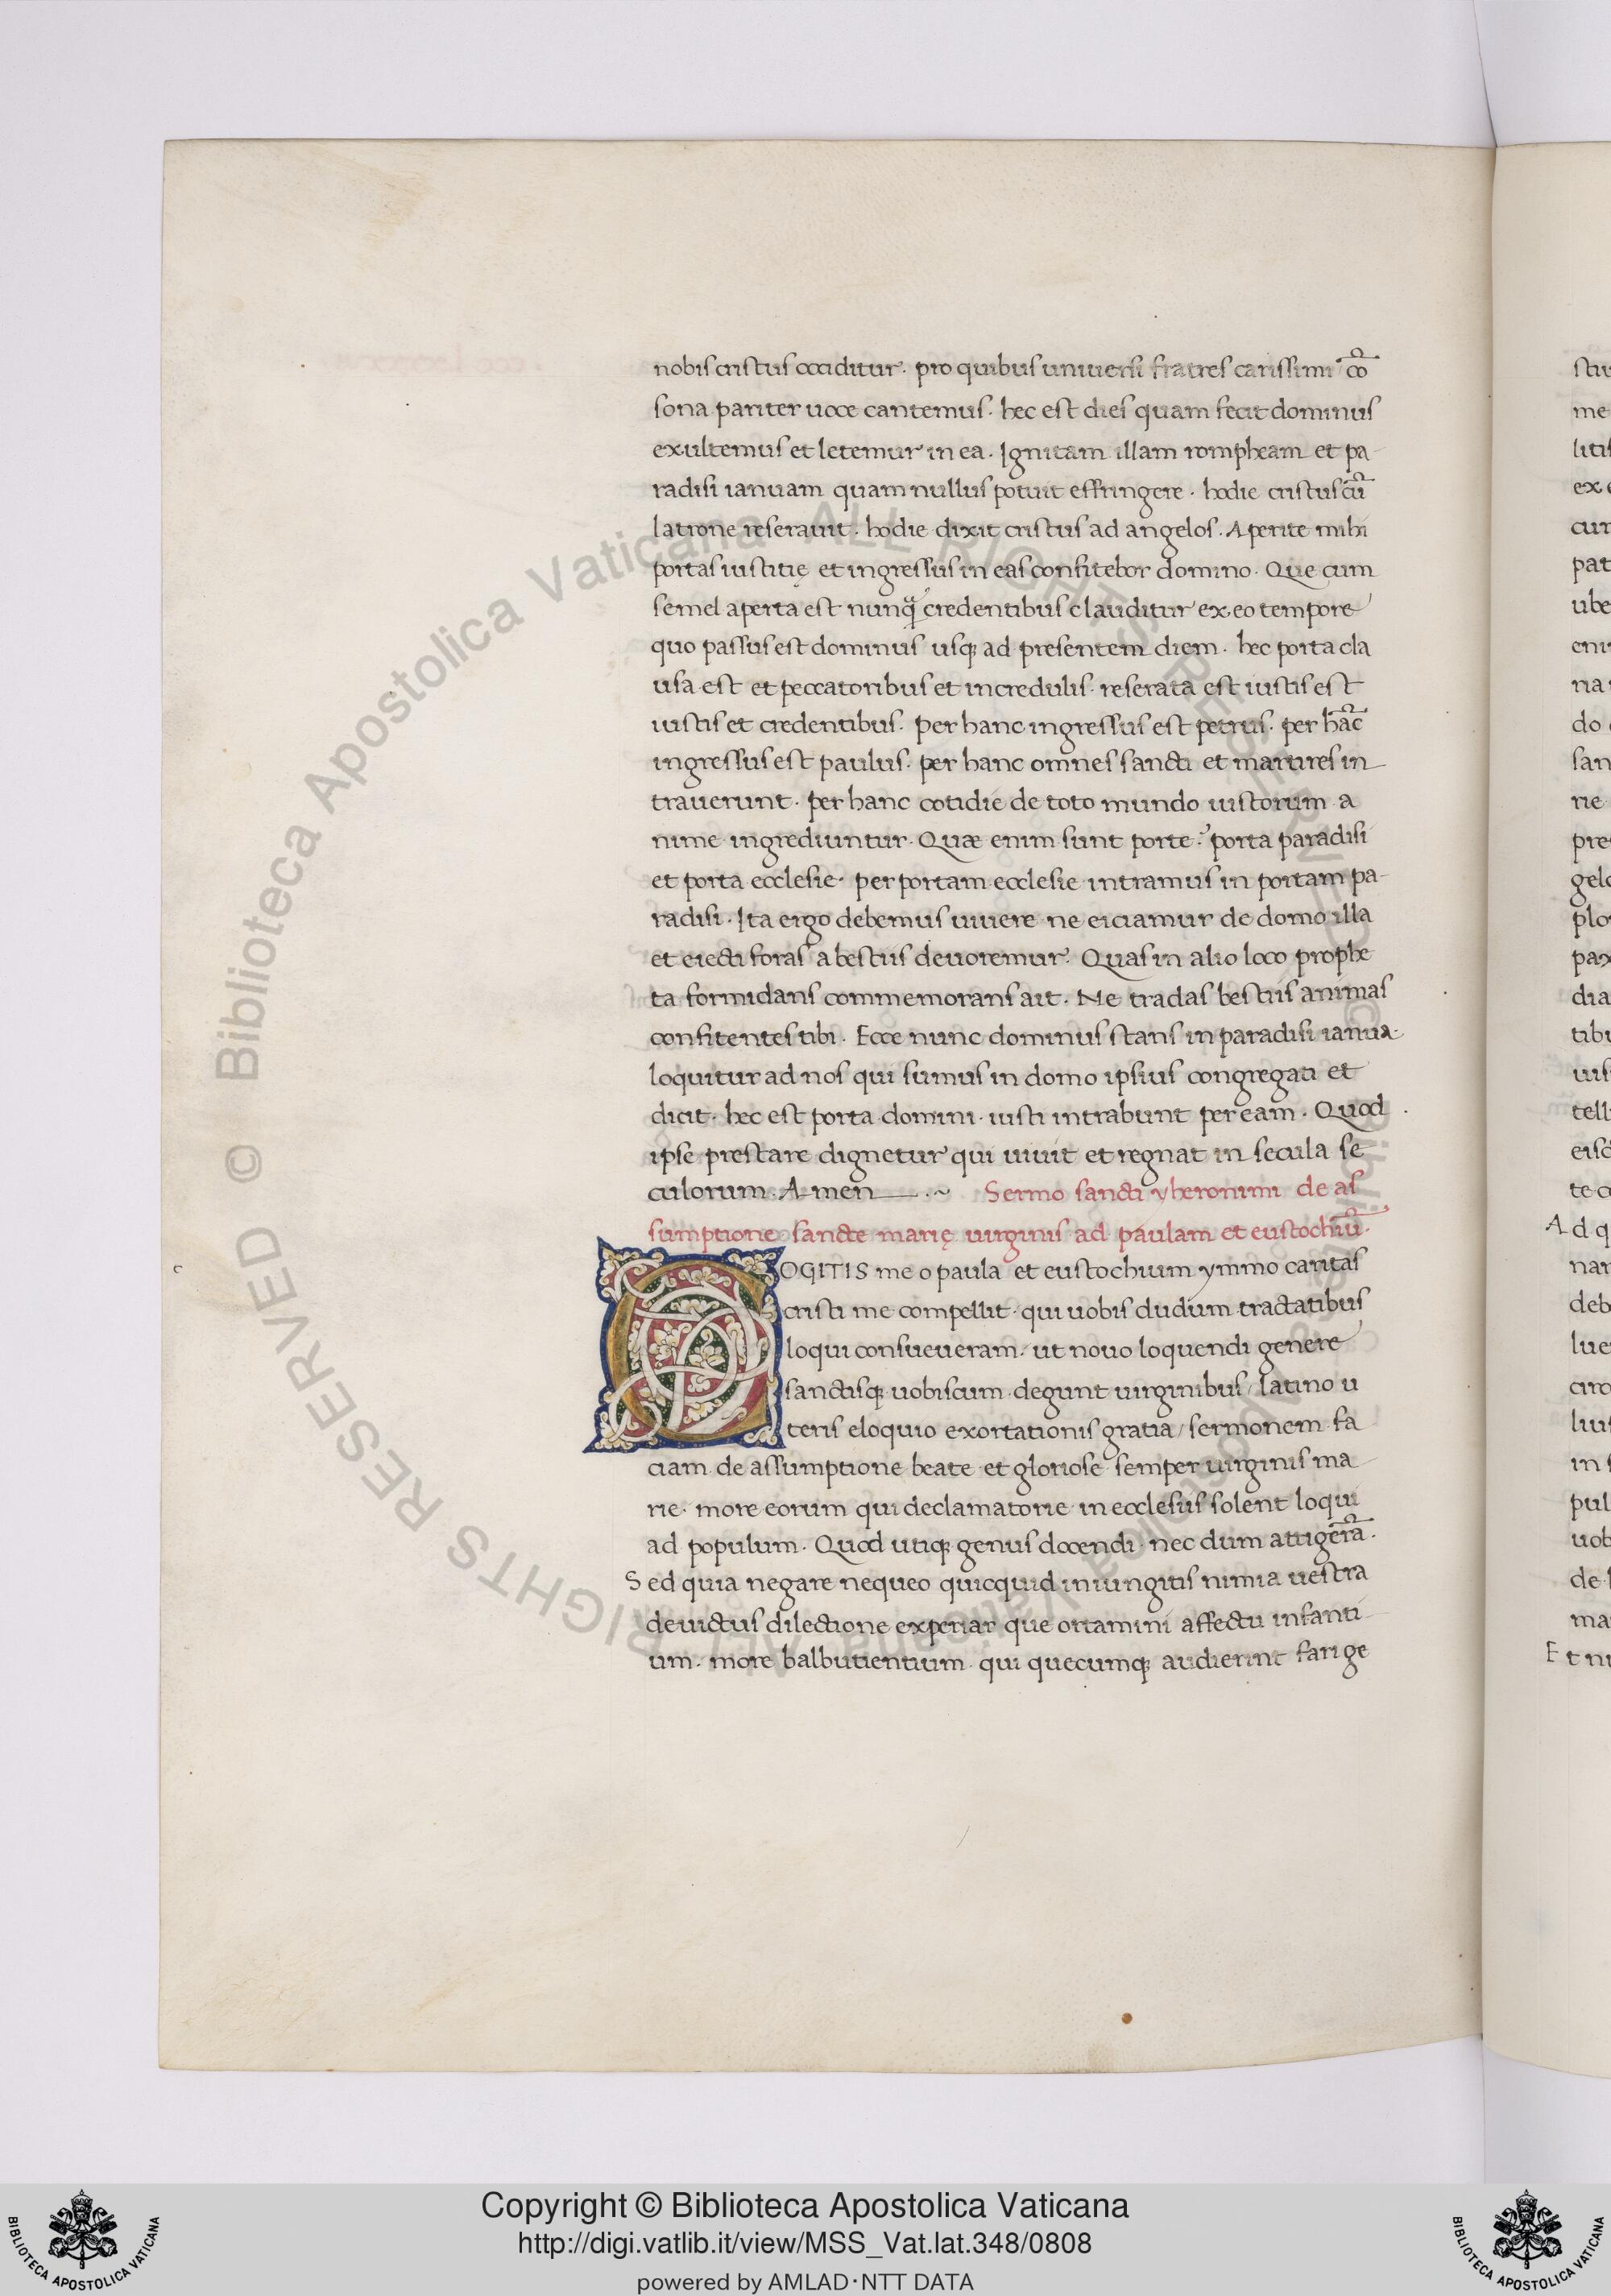 nobis cristus occiditur. pro quibus uniuersi fratres carissimi cō
sona pariter uoce cantemus. hec est dies quam fecit dominus
exultemus et letemur in ea. Ignitam illam rompheam et pa-
radisi ianuam quam nullus potuit effringere. hodie cristus cū
latrone reserauit. hodie dixit cristus ad angelos. Aperite mihi
portas iustitię et ingressus in eas confitebor domino. Que cum
semel aperta est nunq̄ credentibus clauditur ex eo tempore
quo passus est dominus usq; ad presentem diem. hec porta cla
usa est et peccatoribus et incredulis. reserata est iustis est
iustis et credentibus. Per hanc ingressus est petrus. per hāc
ingressus est paulus. per hanc omnes sancti et martires in
trauerunt. per hanc cotidie de toto mundo iustorum a
nime ingrediuntur. Quæ enim sunt porte? porta paradisi
et porta ecclesie. per portam ecclesie intramus in portam pa-
radisi. Ita ergo debemus uiuere ne eiciamur de domo illa
et eiecti foras a bestiis deuoremur. Quas in alio loco prophe
ta formidans commemorans ait. Ne tradas bestiis animas
confitentes tibi. Ecce nunc dominus stans in paradisi ianua.
loquitur ad nos qui sumus in domo ipsius congregati et
dicit. hec est porta domini. iusti intrabunt per eam. Quod
ipse prestare dignetur qui uiuit et regnat in secula se
culorum. Amen .~ Sermo sancti yheronimi de as
sumptione sancte marię uirginis ad paulam et eustochiū.
COGITIS me o paula et eustochium ymmo caritas
cristi me compellit. qui uobis dudum tractatibus
loqui consueueram. ut nouo loquendi genere
sanctisq; uobiscum degunt uirginibus / latino u
teris eloquio exortationis gratia / sermonem fa
ciam de assumptione beate et gloriose semper uirginis ma
rie. more eorum qui declamatorie in ecclesiis solent loqui
ad populum. Quod utiq; genus docendi. nec dum attigerā.
Sed quia negare nequeo quicquid iniungitis nimia uestra
deuictus dilectione experiar que ortamini affectu infanti
um. more balbutientium. qui quecumq; audierint fari ge
c
Copyright © Biblioteca Apostolica Vaticana
http://digi.vatlib.it/view/MSS_Vat.lat.348/0808
powered by AMLAD·NTT DATA
BIBLIOTECA APOSTOLICA VATICANA
BIBLIOTECA APOSTOLICA VATICANA
© Biblioteca Apostolica Vaticana ALL RIGHTS RESERVED © Biblioteca Apostolica Vaticana ALL RIGHTS RESERVED